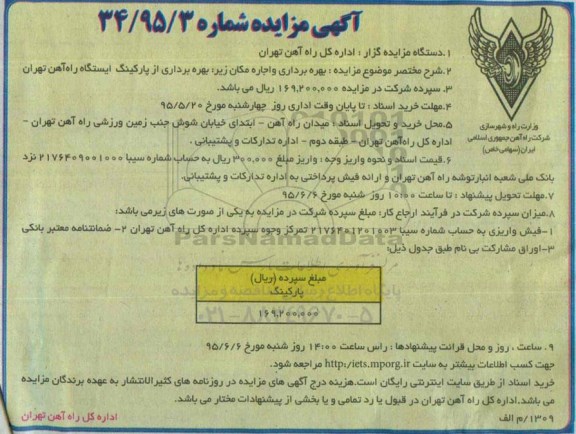 آگهی مزایده شماره ۳۴/۹۵/۳
وزارت راه و شهرسازی
شرکت راه آهن جمهوری اسلامی
ایران (سهامی خاص)
۱.دستگاه مزایده گزار : اداره کل راه آهن تهران
۲.شرح مختصر موضوع مزایده : بهره برداری واجاره مکان زیر: بهره برداری از پارکینگ ایستگاه راه‌آهن تهران
۳. سپرده شرکت در مزایده ۱۶۹,۲۰۰,۰۰۰ ریال می باشد.
۴.مهلت خرید اسناد : تا پایان وقت اداری روز چهارشنبه مورخ ۹۵/۵/۲۰
۵.محل خرید و تحویل اسناد : میدان راه آهن - ابتدای خیابان شوش جنب زمین ورزشی راه آهن تهران -
اداره کل راه‌آهن تهران - طبقه دوم - اداره تدارکات و پشتیبانی .
۶.قیمت اسناد و نحوه واریز وجه : واریز مبلغ ۳۰۰,۰۰۰ ریال به حساب شماره سیبا ۲۱۷۶۴۰۹۰۰۱۰۰۰ نزد
بانک ملی شعبه انبارتوشه راه آهن تهران و ارائه فیش پرداختی به اداره تدارکات و پشتیبانی.
۷.مهلت تحویل پیشنهاد : تا ساعت ۱۰:۰۰ روز شنبه مورخ ۹۵/۶/۶
۸.میزان سپرده شرکت در فرآیند ارجاع کار: مبلغ سپرده شرکت در مزایده به یکی از صورت های زیرمی باشد:
۱-فیش واریزی به حساب شماره سیبا ۲۱۷۶۴۰۱۲۰۱۰۰۳ تمرکز وجوه سپرده اداره کل راه آهن تهران ۲- ضمانتنامه معتبر بانکی
۳-اوراق مشارکت بی نام طبق جدول ذیل:
ParsNamadData
مبلغ سپرده (ریال)
پارکینگ
۱۶۹,۲۰۰,۰۰۰
پایگاه اطلاع رسانی مناقصه و مزایده
۰۲۱-۸۸۳۴۹۶۷۰-۵
۹. ساعت ، روز و محل قرائت پیشنهادها : راس ساعت ۱۴:۰۰ روز شنبه مورخ ۹۵/۶/۶
جهت کسب اطلاعات بیشتر به سایت http://iets.mporg.ir مراجعه شود.
خرید اسناد از طریق سایت اینترنتی رایگان است.هزینه درج آگهی های مزایده در روزنامه های کثیرالانتشار به عهده برندگان مزایده
می باشد.اداره کل راه آهن تهران در قبول یا رد تمامی و یا بخشی از پیشنهادات مختار می باشد.
۱۳۰۹/م الف
اداره کل راه آهن تهران